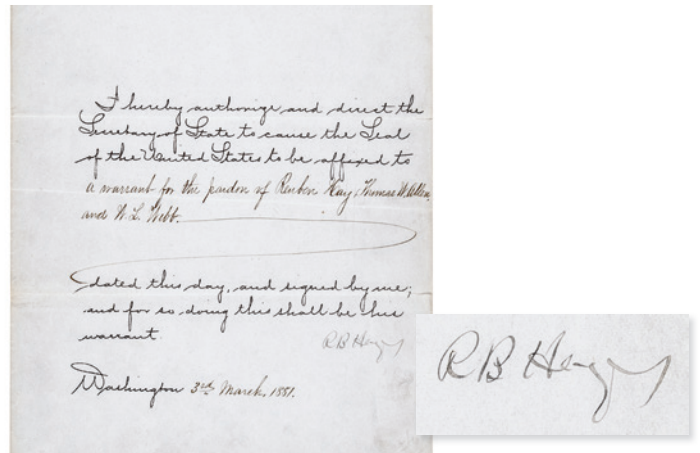 I hereby authorize and direct the
Secretary of State to cause the Seal
of the United States to be affixed to
a warrant for the pardon of Reuben Kay, Thomas W. Allen,
and W. L. Webb.
dated this day, and signed by me;
and for so doing this shall be his
warrant.
R B Hayes
Washington 3rd March, 1881.
R B Hayes